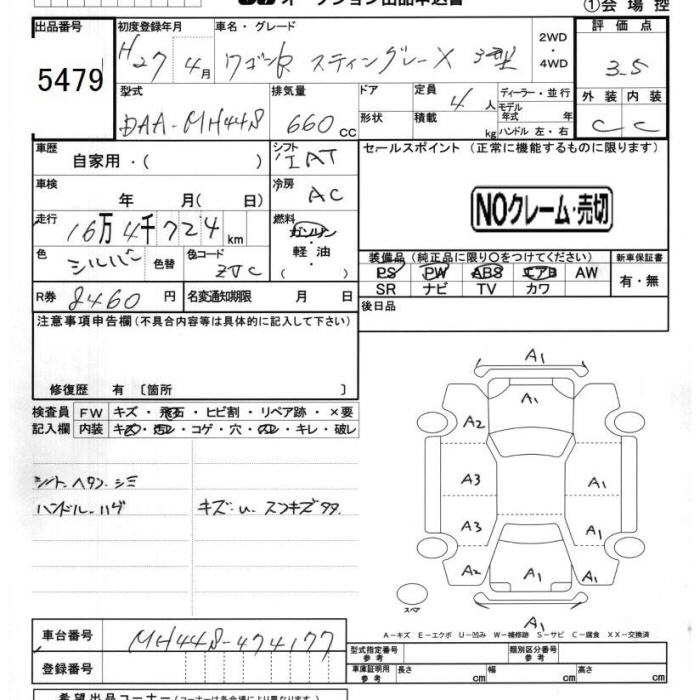 オークション出品申込書
①会場控
出品番号 5479
初度登録年月 H27年4月
車名・グレード ワゴンR スティングレーX 3型
2WD・4WD
評価点 3.5
型式 DAA-MH44S
排気量 660 CC
ドア 形状
定員 4人
積載 kg
ディーラー・並行
モデル年式 年
ハンドル 左・右
外装 C 内装 C
車歴 自家用・( )
シフト IAT
セールスポイント (正常に機能するものに限ります)
車検 年 月( 日)
冷房 AC
NOクレーム・売切
走行 16万4千724km
燃料 ガソリン 軽油
色 シルバー 色替 色コード ZJC
装備品 (純正品に限り○をつけてください)
新車保証書 有・無
PS PW ABS エアB AW
SR ナビ TV カワ
R券 8460円 名変通知期限 月 日
後日品
注意事項申告欄 (不具合内容等は具体的に記入して下さい)
修復歴 有 〔箇所 〕
検査員記入欄
FW キズ・飛石・ヒビ割・リペア跡・×要
内装 キズ・汚レ・コゲ・穴・スレ・キレ・破レ
シート ヘタリ シミ
ハンドル ハゲ キズ・U スリキズ タタ
A1
A1
A2
A3 A1
A3 A1
A2 A1 A1
A1
スペア
A-キズ E-エクボ U-凹み W-補修跡 S-サビ C-腐食 XX-交換済
車台番号 MH44S-474177
登録番号
型式指定番号 参考
類別区分番号 参考
車庫証明用 参考 長さ cm 幅 cm 高さ cm
希望出品コーナー (コーナーは各会場により異なります)